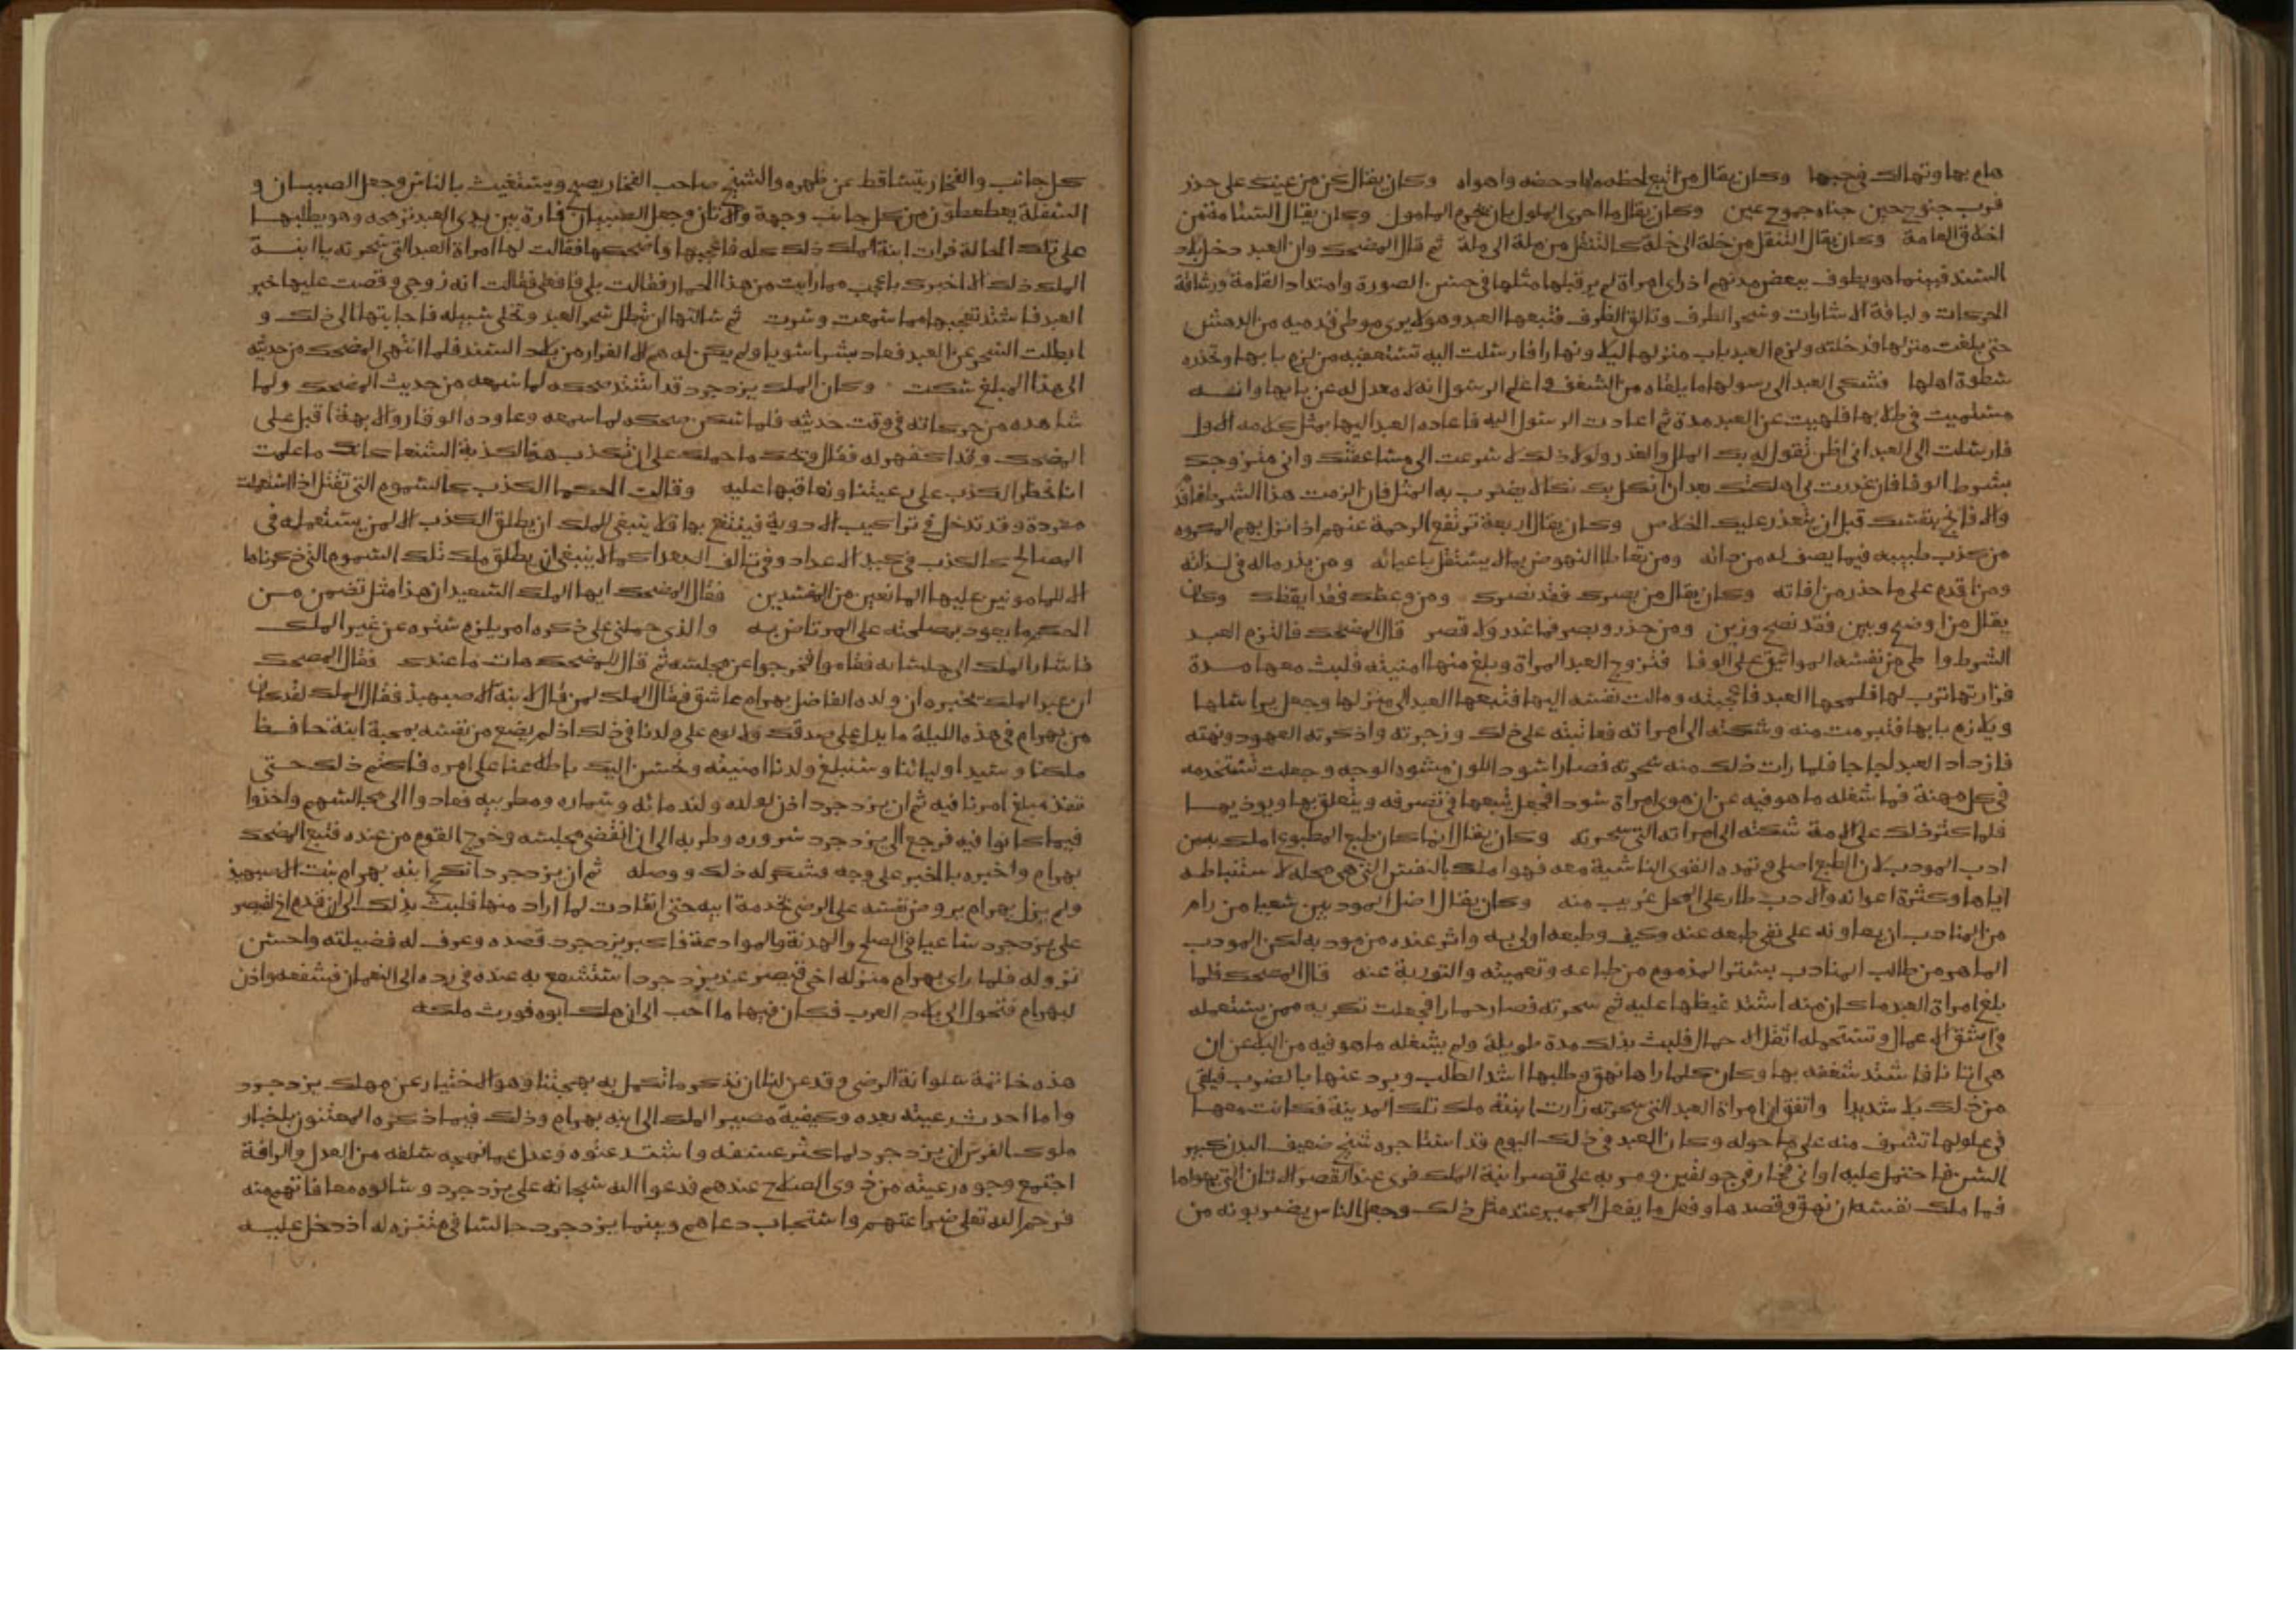 هام بها وتهالك في حبها وكان يقال من اتبع لحظه هواه ادحضه واهواه وكان يقال كن من عينك على حذر
فرب جنوح حين جناه جموح عين وكان يقال ما احرى الملول بان يحرم المامول وكان يقال السئامة من
اخلاق العامة وكان يقال التنقل من خلة الى خلة كالتنقل من ملة الى ملة ثم قال المضحك وان العبد دخل بلاد
السند فبينما هو يطوف ببعض مدنهم اذ راى امراة لم ير قبلها مثلها في حسن الصورة وامتداد القامة ورشاقة
الحركات ولباقة الاشارات وسحر الطرف وتالق الظرف فتبعها العبد وهو لا يرى موطى قدميه من الدهش
حتى بلغت منزلها فدخلته ولزم العبد باب منزلها ليلا ونهارا فارسلت اليه تستعفيه من لزم بابها وتحذره
سطوة اهلها فشكى العبد الى رسولها ما يلقاه من الشغف واعلم الرسول انه لا معدل له عن بابها وانه
مستميت في طلابها فلهيت عن العبد مدة ثم اعادت الرسول اليه فاعاده العبد اليها بمثل كلامه الاول
فارسلت الى العبد اني اظن بك الملل والغدر ولولا ذلك لاسرعت الى مساعفتك واني متزوجتك
بشرط الوفا فان غدرت بي اهلكتك بعد ان انكل بك نكالا يضرب به المثل فان الزمت هذا الشرط فاقدم
والا فانج بنفسك قبل ان يتعذر عليك الخلاص وكان يقال اربعة ترتفع الرحمة عنهم اذا نزل بهم المكروه
من كذب طبيبه فيما يصف له من دائه ومن تعاطا النهوض بما لا يستقل باعبائه ومن بذر ماله في لذاته
ومن اقدم على ما حذر من افاته وكان يقال من بصرك فقد نصرك ومن وعظك فقد ايقظك وكان
يقال من اوضح وبين فقد نصح وزين ومن حذر وبصر فما غدر ولا قصر قال المضحك فالتزم العبد
الشرط واعطى من نفسه المواثيق على الوفا فتزوج العبد المراة وبلغ منها امنيته فلبث معها مدة
فزارتها ترب لها فلمحها العبد فاعجبته ومالت نفسه اليها فتبعها العبد الى منزلها وجعل يراسلها
ويلازم بابها فتبرمت منه وشكته الى امراته فعاتبته على ذلك وزجرته واذكرته العهود ونهته
فازداد العبد لجاجا فلما رات ذلك منه سحرته فصار اسود اللون مشوه الوجه وجعلت تستخدمه
في كل مهنة فما شغله ما هو فيه عن ان هوى امراة سودا فجعل يتبعها في تصرفه ويتعلق بها ويوذيها
فلما كثر ذلك على الامة شكته الى امراته التي سحرته وكان يقال انما كان طبع المطبوع املك به من
ادب المودب لان الطبع اصلي وتمده القوى الناشية معه فهو املك بالنفس التي هي محله لاستنباطه
اياها وكثرة اعوانه والادب طار على المحل غريب منه وكان يقال اضل المودبين سعيا من رام
من المتادب ان يعاونه على نفي طبعه عنه وكيف وطبعه اولى به واثر عنده من مودبه لكن المودب
الماهر من طالب المتادب بستر المذموم من طباعه وتعميته والتورية عنه قال المضحك فلما
بلغ امراة العبد ما كان منه اشتد غيظها عليه ثم سحرته فصار حمارا فجعلت تكريه ممن يستعمله
في اشق الاعمال وتستحمله اثقل الاحمال فلبث بذلك مدة طويلة ولم يشغله ما هو فيه من البلا عن ان
هوى اتانا فاشتد شغفه بها وكان كلما راها نهق وطلبها اشد الطلب ويرد عنها بالضرب فيلقى
من ذلك بلا شديدا واتفق ان امراة العبد التي سحرته زارت ابنة ملك تلك المدينة فكانت معها
في علو لها تشرف منه على ما حوله وكان العبد في ذلك اليوم قد استاجره شيخ ضعيف البدن كبير
السن فاحتمل عليه اواني فخار في جولقين ومر به على قصر ابنة الملك فرى عند القصر الاتان التي يهواها
فما ملك نفسه ان نهق وقصدها وفعل ما يفعل الحمير عند مثل ذلك وجعل الناس يضربونه من
كل جانب والفخار يتساقط عن ظهره والشيخ صاحب الفخار يصيح ويستغيث بالناس وجعل الصبيان و
السفلة يعطعطون من كل جانب وجهة والاتان وجعل الصبيان فارة بين يدي العبد ترمحه وهو يطلبها
على تلك الحالة فرات ابنة الملك ذلك كله فاعجبها واضحكها فقالت لها امراة العبد التي سحرته يا ابنة
الملك الا اخبرك باعجب مما رايت من هذا الحمار فقالت بلى فافعلي فقالت انه زوجي وقصت عليها خبر
العبد فاشتد تعجبها مما سمعت وسرت ثم سالتها ان تبطل سحر العبد وتخلي سبيله فاجابتها الى ذلك و
ابطلت السحر عن العبد فعاد بشرا سويا ولم يكن له هم الا الفرار من بلاد السند فلما انتهى المضحك من حديثه
الى هذا المبلغ سكت وكان الملك يزدجرد قد اشتد ضحكه لما سمعه من حديث المضحك ولما
شاهده من حركاته في وقت حديثه فلما سكن ضحكه لما سمعه وعاوده الوقار والابهة اقبل على
المضحك وقد اكفهر له فقال ويحك ما حملك على ان تكذب هذه الكذبة الشنعا كانك ما علمت
انا نحظر الكذب على رعيتنا ونعاقبها عليه وقالت الحكما الكذب كالسموم التي تقتل اذا استعملت
مفردة وقد تدخل في تراكيب الادوية فينتفع بها فلا ينبغي للملك ان يطلق الكذب الا لمن يستعمله في
المصالح كالكذب في كيد الاعدا وفي تالف البعدا كما لا ينبغي ان يطلق ملك تلك السموم التي ذكرناها
الا للمامونين عليها المانعين من المفسدين فقال المضحك ايها الملك السعيد ان هذا مثل تضمن من
الحكم ما يعود بمصلحته على المرتاض به والذي حملني على ذكره امر يلزم ستره عن غير الملك
فاشار الملك الى جلسائه فقاموا فخرجوا عن مجلسه ثم قال للمضحك هات ما عندك فقال المضحك
ان عبد الملك يخبره ان ولده الفاضل بهرام عاشق فقال الملك لمن قال لابنة الاصبهبذ فقال الملك لقد كان
من بهرام في هذه الليلة ما يدل على صدقك ولا لوم على ولدنا في ذلك اذ لم يضع من نفسه بمحبة ابنة حافظ
ملكنا وسيد اوليائنا وسنبلغ ولدنا امنيته ونحسن اليك باطلاعنا على امره فاكتم ذلك حتى
ننفذ مبلغ امرنا فيه ثم ان يزدجرد اذن لولده ولندمائه وسماره ومطربيه فعادوا الى مجالسهم واخذوا
فيما كانوا فيه فرجع الى يزدجرد سروره وطربه الى ان انقضى مجلسه وخرج القوم من عنده فتبع المضحك
بهرام واخبره بالخبر على وجهه فشكر له ذلك ووصله ثم ان يزدجرد انكح ابنه بهرام بنت الاصبهبذ
ولم يزل بهرام يروض نفسه على الرضى بخدمة ابيه حتى انقادت لما اراد منها فلبث بذلك الى ان قدم اخو قيصر
على يزدجرد ساعيا في الصلح والهدنة والموادعة فاكبر يزدجرد قصده وعرف له فضيلته واحسن
نزوله فلما راى بهرام منزلة اخي قيصر عند يزدجرد استشفع به عنده في رده الى النعمان فشفعه واذن
لبهرام فتحول الى بلاد العرب فكان فيها ما احب الى ان هلك ابوه فورث ملكه
هذه خاتمة سلوانة الرضى وقد عن لنا ان نذكر ما تكمل به بهجتنا وهو الاختيار عن مهلك يزدجرد
وما احدث رعيته بعده وكيفية مصير الملك الى ابنه بهرام وذلك فيما ذكره المعتنون باخبار
ملوك الفرس ان يزدجرد لما كثر عسفه واشتد عتوه وعدل عما نهجه سلفه من العدل والرافة
اجتمع وجوه رعيته من ذوي الصلاح عندهم فدعوا الله سبحانه على يزدجرد وسالوه معافاتهم منه
فرحم الله تعلى ضراعتهم واستجاب دعاهم وبينما يزدجرد جالسا في متنزه له اذ دخل عليه